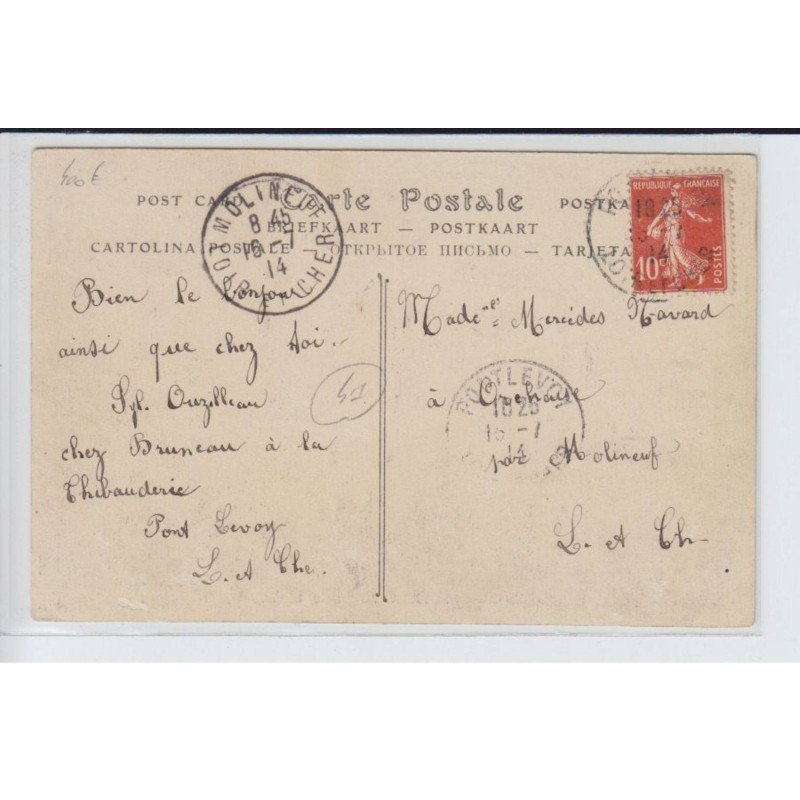 400€
POST CARD Carte Postale POSTKA
BRIEFKAART — POSTKAART
CARTOLINA POSTALE ОТКРЫТОЕ ПИСЬМО — TARJETA
MOLINEUF
8 45
16 -7
14
LOIR-ET-CHER
REPUBLIQUE FRANÇAISE
10c
POSTES
18 25
14
Bien le bonjour
ainsi que chez toi.
Syl. Ouzilleau
chez Bruneau à la
Thibauderie
Pont Levoy
L. et Che.
41
Made elle Mercédes Navard
à Orchaise
par Molineuf
L. et Ch.
PONTLEVOY
18 25
15 -7
14